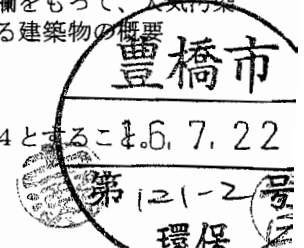 欄をもって、大気汚染
る建築物の概要
豊橋市
4とすること。
6. 7. 22
第121-2号
環保